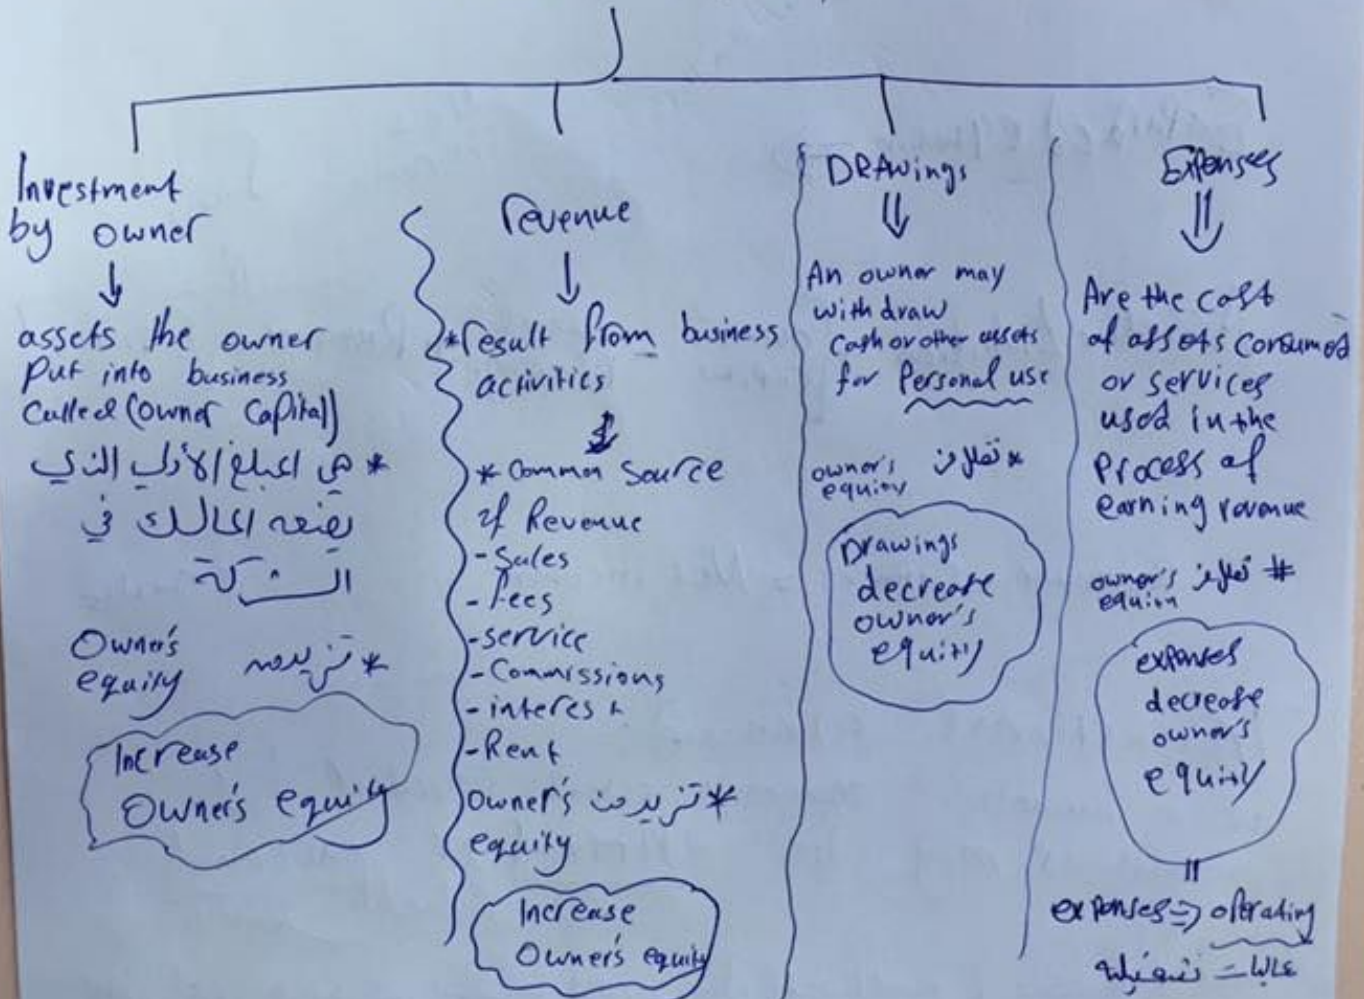 Investment
by owner
assets the owner
Put into business
Called (Owner Capital)
* هي المبلغ الأولي الذي
يضعه المالك في
الشركة
* تزيد من Owner's
equity
Increase
Owner's equity
revenue
*result from business
activities
* Common Source
of Revenue
- Sales
- fees
- service
- Commissions
- interest
- Rent
* تزيد من Owner's
equity
Increase
Owner's equity
DRAwings
An owner may
with draw
Cash or other assets
for Personal use
* تقلل من owner's
equity
Drawings
decrease
owner's
equity
Expenses
Are the cost
of assets consumed
or services
used in the
Process of
earning revenue
# تقلل من owner's
equity
expenses
decrease
owner's
equity
expenses => operating
غالباً تشغيلية